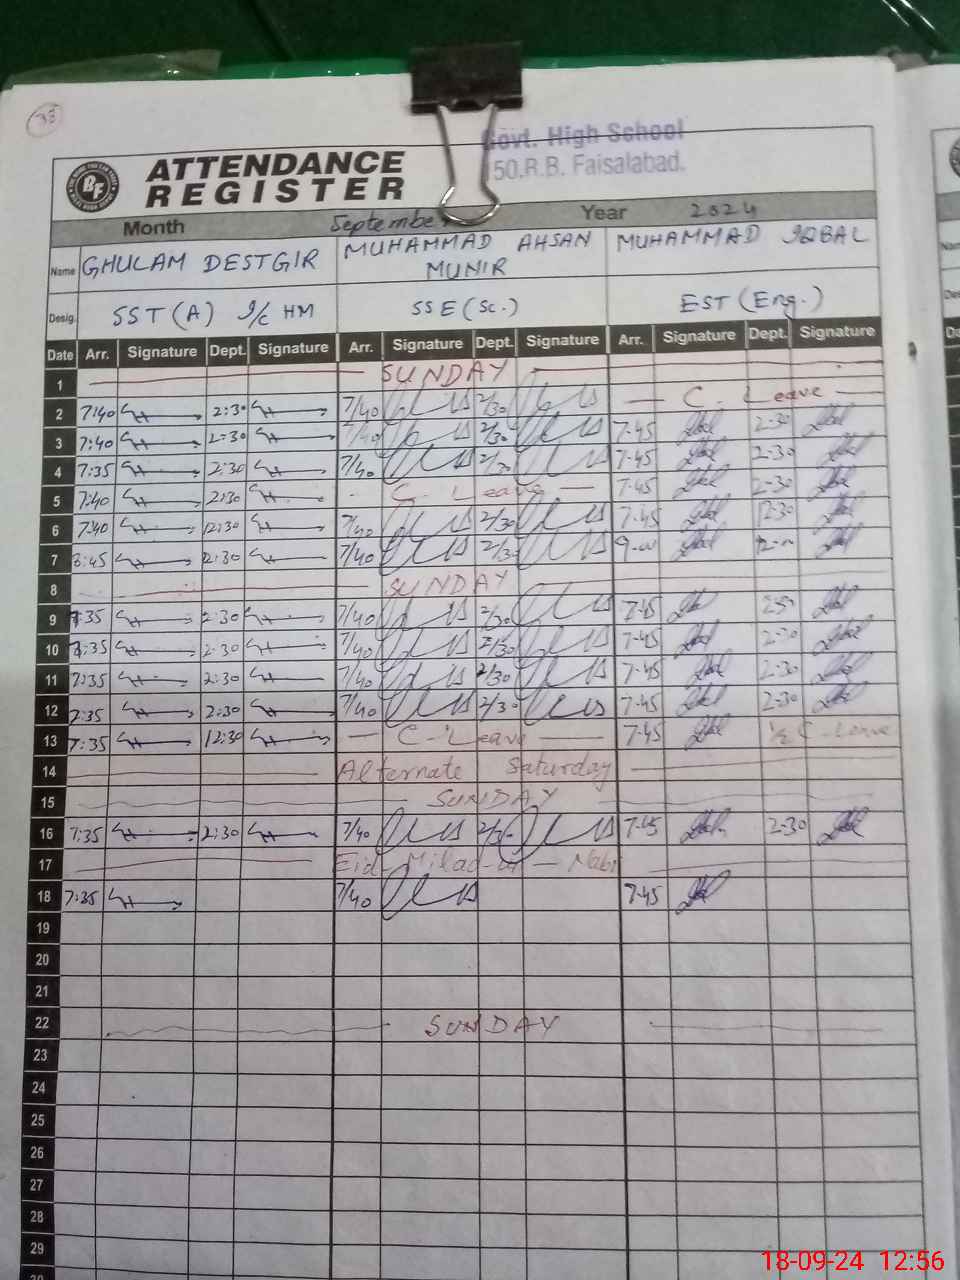 38
Govt. High School
150,R.B. Faisalabad.
BF
ATTENDANCE
REGISTER
Month September Year 2024
Name GHULAM DESTGIR MUHAMMAD AHSAN MUNIR MUHAMMAD IQBAL
Desig. SST (A) I/C HM SSE (Sc.) EST (Eng.)
Date Arr. Signature Dept. Signature Arr. Signature Dept. Signature Arr. Signature Dept. Signature
1 SUNDAY
2 7:40 2:30 7/40 2/30 C. Leave
3 7:40 2:30 7/40 2/30 7-45 2-30
4 7:35 2:30 7/40 2/30 7-45 2-30
5 7:40 2:30 C. Leave 7-45 2-30
6 7:40 12:30 7/40 2/30 7-45 12-30
7 2:30 7/40 2/30
8 SUNDAY
9 7:35 2:30 7/40 2/30 7-45
10 7:35 2:30 7/40 2/30 7-45 2-30
11 7:35 2:30 7/40 2/30 7-45 2-30
12 7:35 2:30 7/40 2/30 7-45 2-30
13 7:35 12:30 C-Leave 7-45 ½ C-Leave
14 Alternate Saturday
15 SUNDAY
16 7:35 2:30 7/40 7-45 2-30
17 Eid-Milad-un-Nabi
18 7:35 7/40 7-45
19
20
21
22 SUNDAY
23
24
25
26
27
28
29
18-09-24 12:56